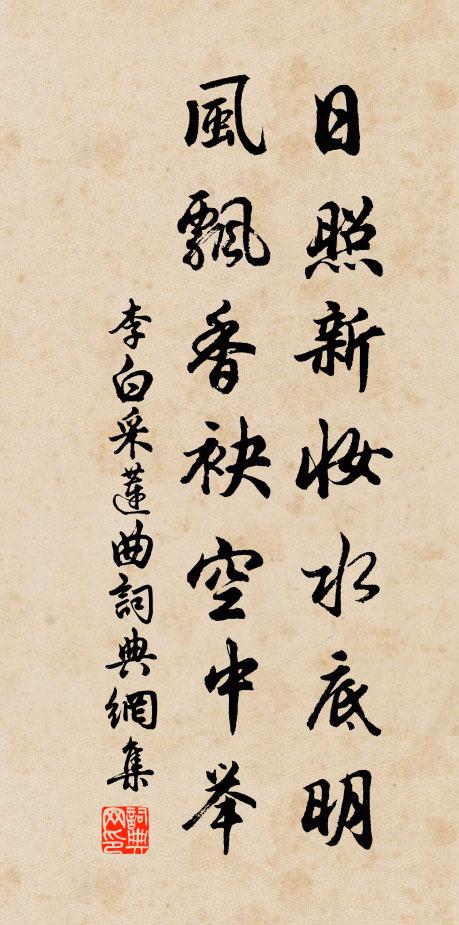 日照新妝水底明
風飄香袂空中举
李白采蓮曲詞典網集
詞典网印